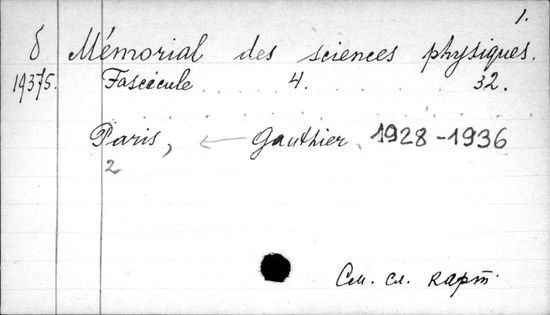 1.
б Mémorial des sciences physiques.
19375. Fascicule . . 4. . . . . . . 32.
Paris, ← Gauthier. 1928-1936
2
См. сл. карт.